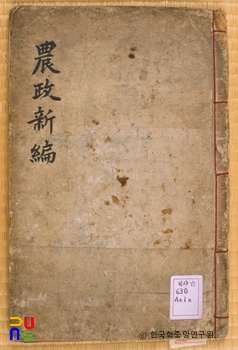 農政新編
630
© 한국학중앙연구원